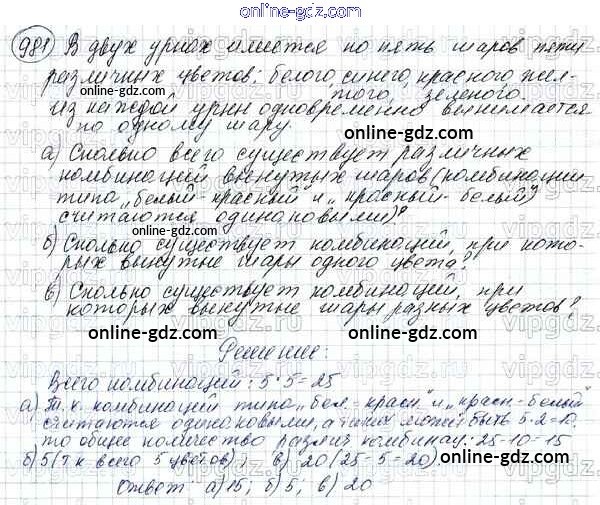 online-gdz.com
981 В двух урнах имеется по пять шаров пяти
различных цветов: белого, синего, красного, жел-
online-gdz.com
того, зеленого.
Из каждой урны одновременно вынимается
по одному шару.
online-gdz.com
а) Сколько всего существует различных
online-gdz.com
комбинаций вынутых шаров (комбинации
типа „белый-красный" и „красный-белый"
считаются одинаковыми)?
online-gdz.com
б) Сколько существует комбинаций, при кото-
рых вынутые шары одного цвета?
online-gdz.com
в) Сколько существует комбинаций, при
которых вынутые шары разных цветов?
online-gdz.com
online-gdz.com
Решение:
Всего комбинаций: 5·5=25
online-gdz.com
а) Т.к. комбинаций типа „бел.-красн" и „красн.-белый"
считаются одинаковыми, а таких может быть 5·2=10,
то общее количество различ комбинац.: 25-10=15
б) 5 (т к всего 5 цветов); в) 20 (25-5=20).
online-gdz.com
Ответ: а) 15; б) 5; в) 20
online-gdz.com